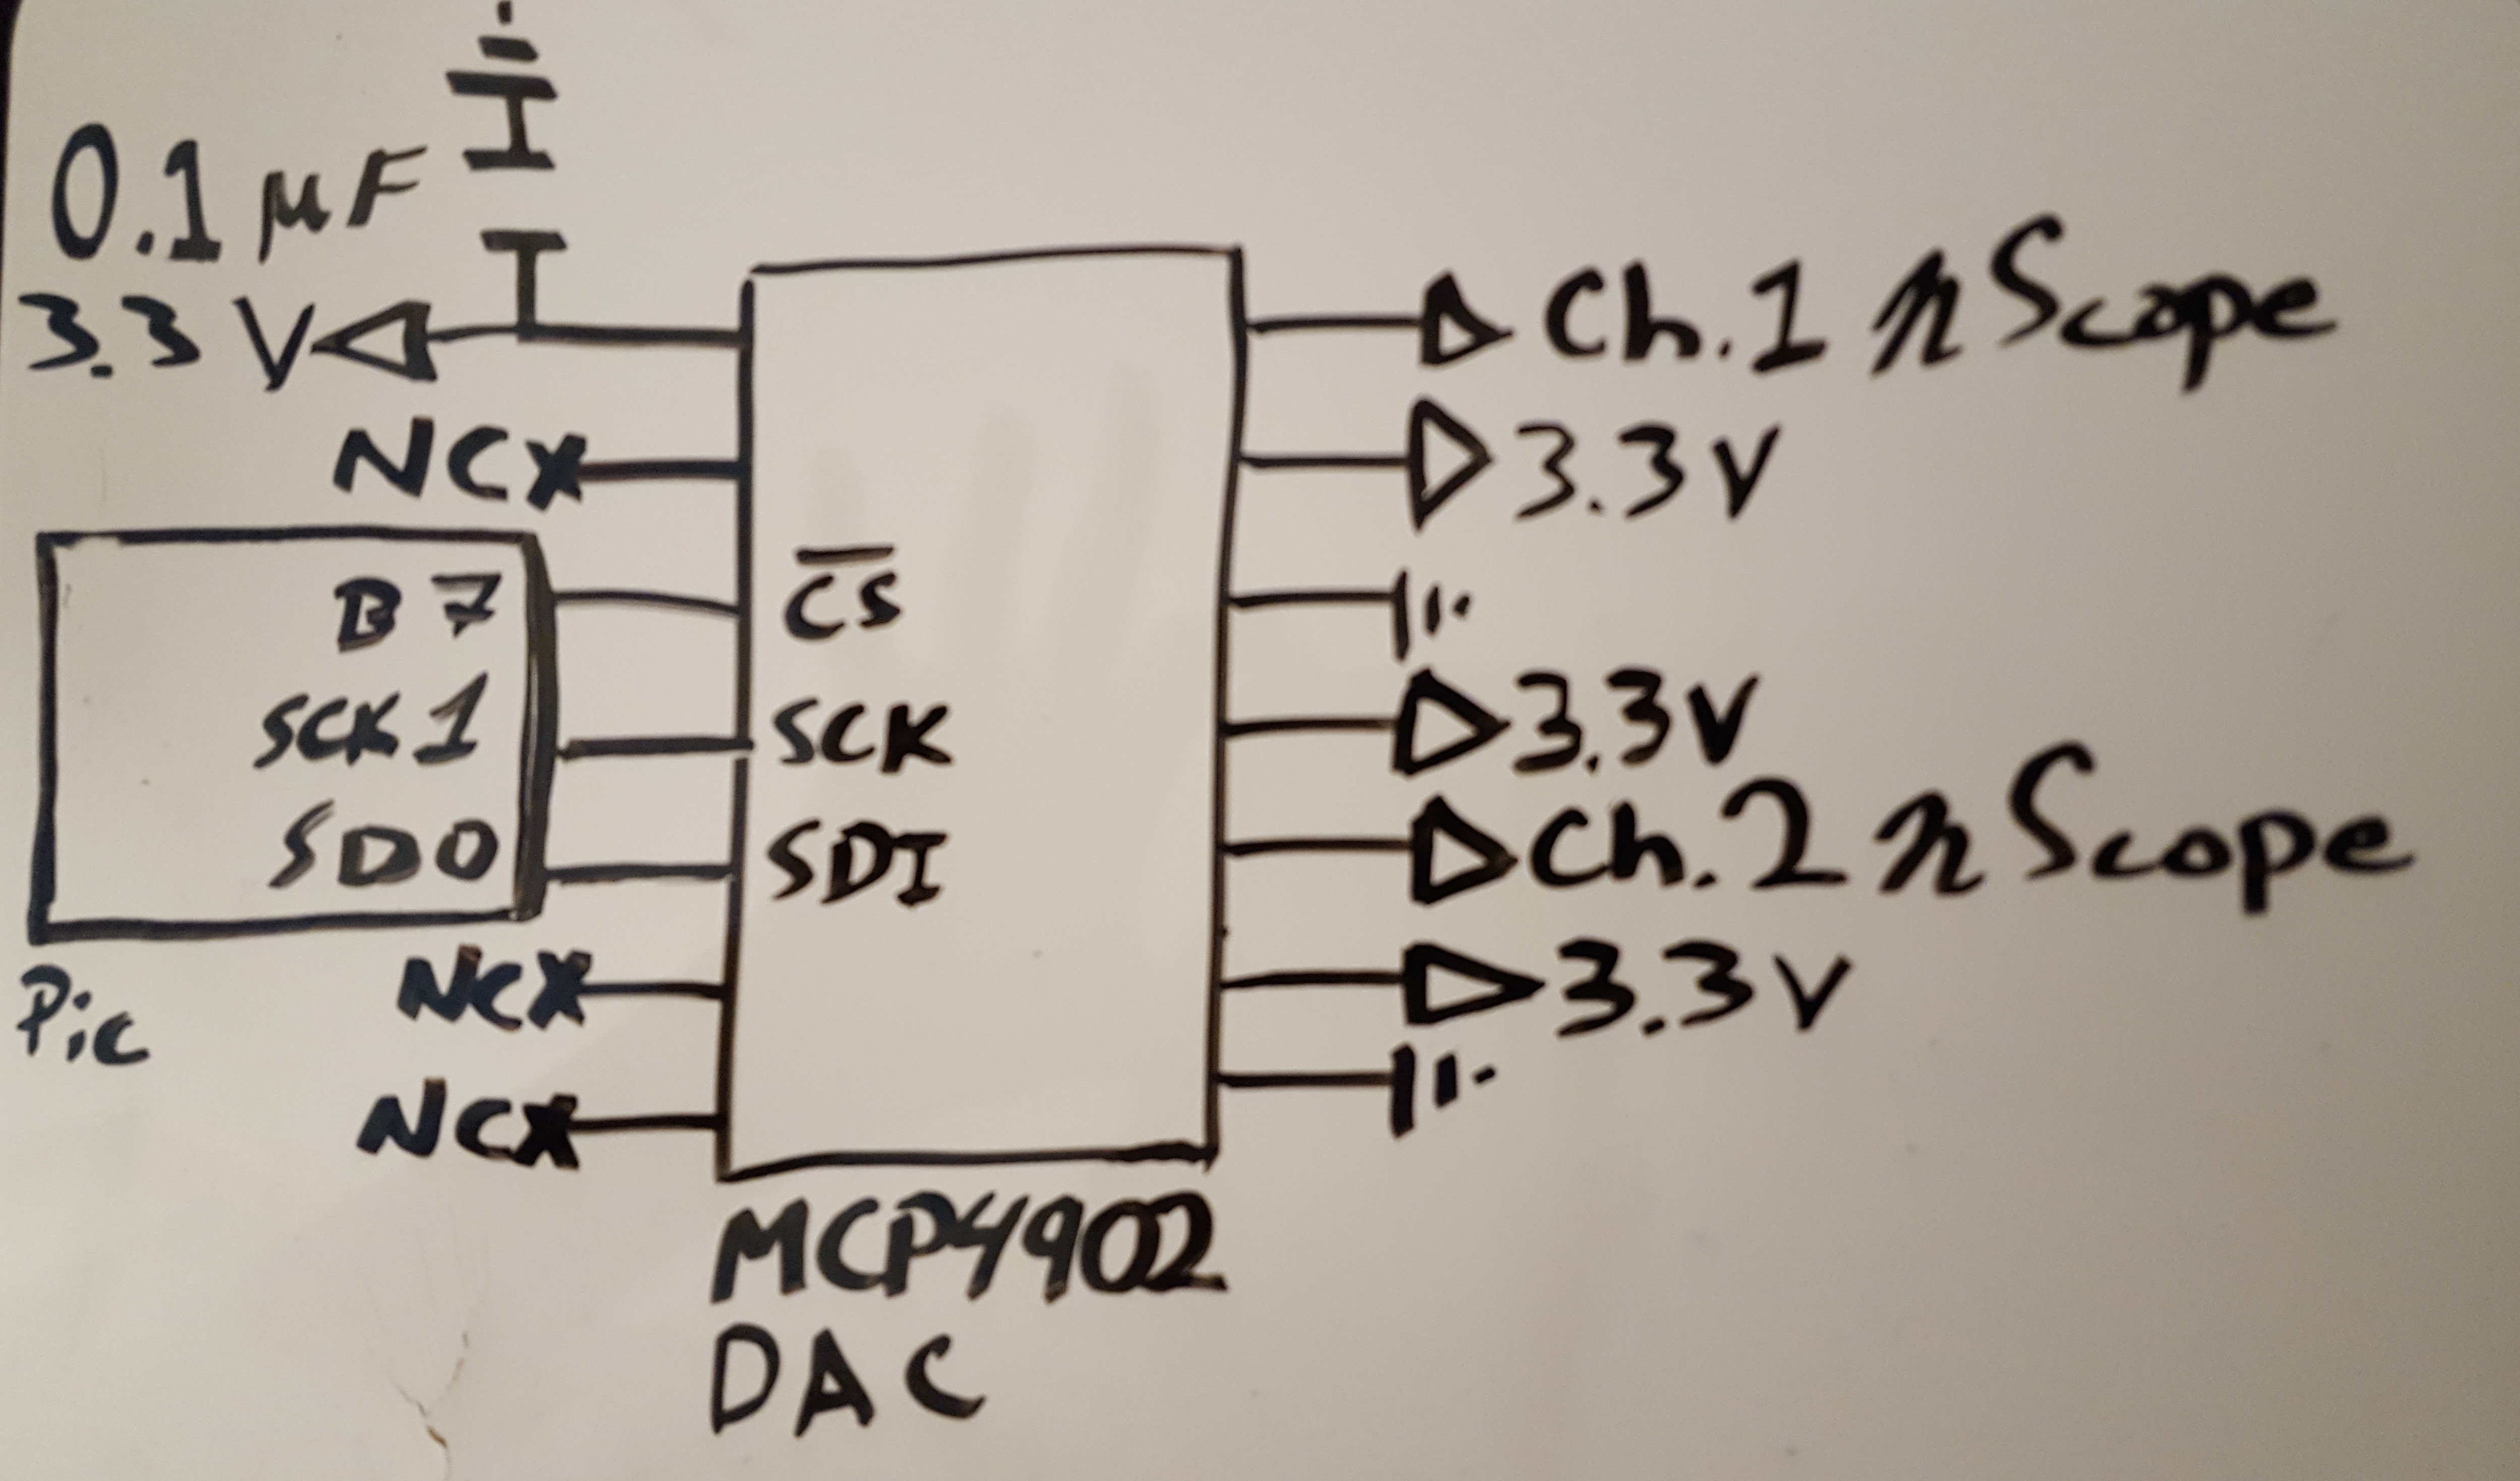 0.1 µF
3.3 V
NC
B7
SCK1
SDO
Pic
NC
NC
C̅S̅
SCK
SDI
MCP4902
DAC
Ch.1 nScope
3.3V
3.3V
Ch.2 nScope
3.3V